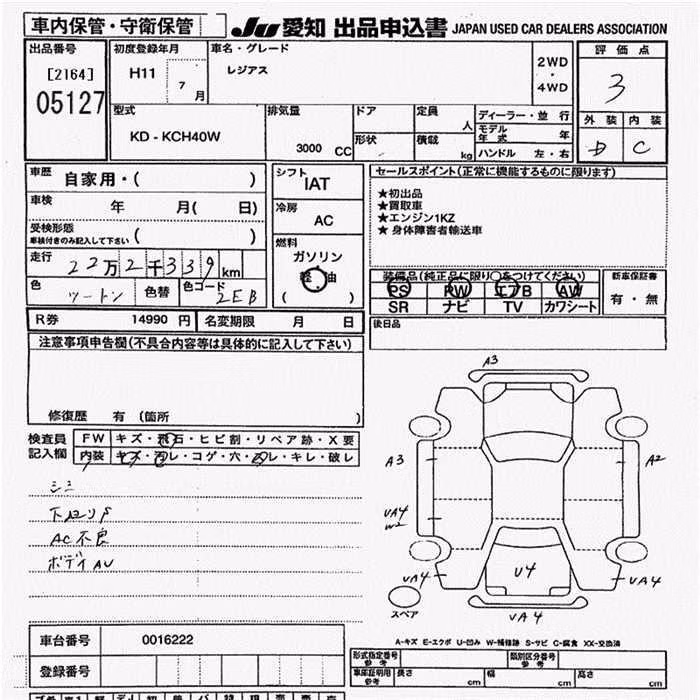 車内保管・守衛保管
JU 愛知 出品申込書 JAPAN USED CAR DEALERS ASSOCIATION
出品番号
[2164]
05127
初度登録年月
H11
7
月
車名・グレード
レジアス
2WD
・
4WD
評価点
3
外装 内装
D C
型式
KD - KCH40W
排気量
3000 CC
ドア
形状
定員
人
積載
kg
ディーラー・並行
モデル年式 年
ハンドル 左・右
車歴 自家用・( )
車検 年 月( 日)
受検形態
車検付きのみ記入して下さい ( )
走行 22万2千339km
色 ツートン 色替 色コード 2EB
シフト
IAT
冷房
AC
燃料
ガソリン
軽油
( )
セールスポイント(正常に機能するものに限ります)
★初出品
★買取車
★エンジン1KZ
★身体障害者輸送車
装備品(純正品に限り○をつけてください)
PS PW エアB AW
SR ナビ TV カワシート
新車保証書
有・無
R券 14990 円 名変期限 月 日
後日品
注意事項申告欄(不具合内容等は具体的に記入して下さい)
修復歴 有 (箇所 )
検査員
記入欄
FW キズ・飛石・ヒビ割・リペア跡・X要
内装 キズ・汚レ・コゲ・穴・スレ・キレ・破レ
シミ
AC不良
ボディAU
A3
A3
A2
UA4
W2
UA4
U4
UA4
UA4
スペア
A-キズ E-エクボ U-凹み W-補修跡 S-サビ C-腐食 XX-交換済
車台番号 0016222
登録番号
形式指定番号
参考
類別区分番号
参考
車庫証明用
参考
長さ cm 幅 cm 高さ cm